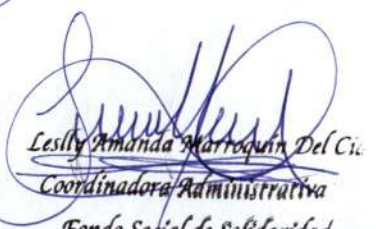 Leslly Amanda Marroquín Del
Coordinadora Administrativa
Fondo Social de Solidaridad